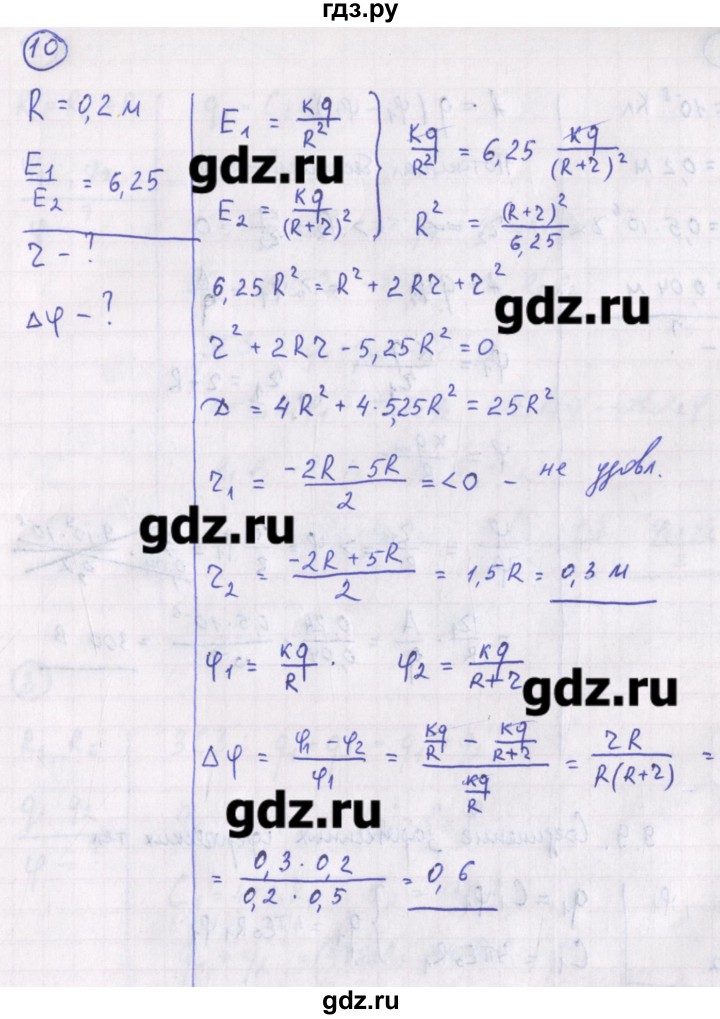 гдз.ру
10
R = 0,2 м
E₁/E₂ = 6,25
r - ?
Δφ - ?
E₁ = kq/R²
E₂ = kq/(R+r)²
kq/R² = 6,25 kq/(R+r)²
R² = (R+r)²/6,25
gdz.ru
6,25R² = R² + 2Rr + r²
gdz.ru
r² + 2Rr - 5,25R² = 0
D = 4R² + 4·5,25R² = 25R²
r₁ = (-2R - 5R)/2 = <0 - не удовл.
gdz.ru
r₂ = (-2R + 5R)/2 = 1,5R = 0,3 м
φ₁ = kq/R. φ₂ = kq/(R+r)
gdz.ru
Δφ = (φ₁ - φ₂)/φ₁ = (kq/R - kq/(R+r))/(kq/R) = rR/(R(R+r)) =
gdz.ru
= (0,3·0,2)/(0,2·0,5) = 0,6
gdz.ru